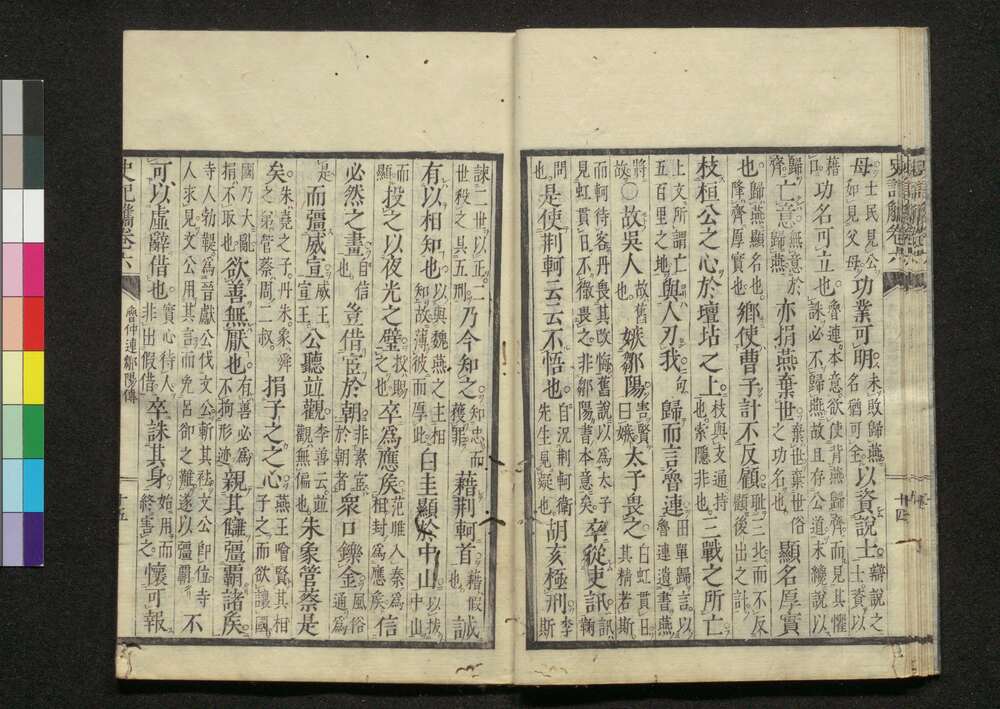 史記觽卷六 十四
母士民見公如見父母功業可明未敗歸燕名猶可全以資說士辯說之士資以
藉口功名可立也魯連本意欲使背燕歸齊而見其懼誅必不歸燕故且存公道末纔說以
歸齊亡意無意於歸燕亦捐燕棄世棄世棄世俗之功名也顯名厚實
也歸燕顯名也隆齊厚實也鄉使曹子計不反顧耻三北而不反顧後出之計
枝桓公之心於壇坫之上枝與支通持也索隱非也三戰之所亡
上文所謂亡五百里之地與人刃我二句歸而言魯連田單歸言以魯連遺書燕
將故○故吳人也故舊也嫉鄒陽害賢曰嫉太子畏之白虹貫日其精若斯
而軻待客丹畏其改悔舊說以為太子見虹貫日不徹畏之非鄒陽書本意矣卒從吏訊訊鞠
問也是使荊軻云云不悟也自況荊軻衛先生見疑也胡亥極刑李斯
諫二世以正二世殺之具五刑乃今知之知忠而獲罪藉荊軻首藉假也誠
有以相知也以與魏燕之主相知故薄彼而厚此白圭顯於中山以拔中山
而顯投之以夜光之璧投賜之也卒為應矦范雎入秦為相封為應矦信
必然之畫自信也豈借宦於朝非素宦於朝者衆口鑠金風俗通為
是而彊威宣威王宣王公聽竝觀李善云竝觀無偏也朱象管蔡是
矣朱堯之子丹朱象舜之弟管蔡周二叔捐子之之心燕王噲賢其相子之而欲讓國
國乃大亂捐不取也欲善無厭也有善必為不拘形迹親其讎彊霸諸矦
寺人勃鞮為晉獻公伐文公斬其袪文公即位寺人求見文公用其言而免呂卻之難遂以彊霸不
可以虛辭借也實心待人非出假借卒誅其身始用而終害之懷可報
史記觽卷六 魯仲連鄒陽傳 十五